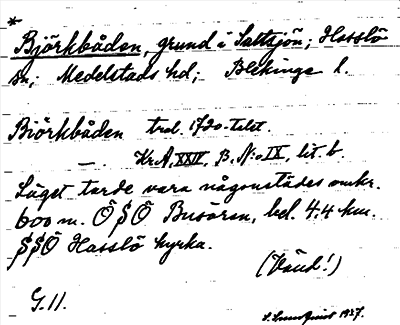 *
Björkbåden, grund i Saltsjön; Hasslö
sn; Medelstads hd; Blekinge l.
Biörkbåden trol. 1720-talet.
— . Kr.A, XXIV, B, N:o IX, lit. b.
Läget torde vara någonstädes omkr.
600 m. ÖSÖ Busören, bel. 4.4 km.
SSÖ Hasslö kyrka.
(Vänd!)
G.11.
1927.